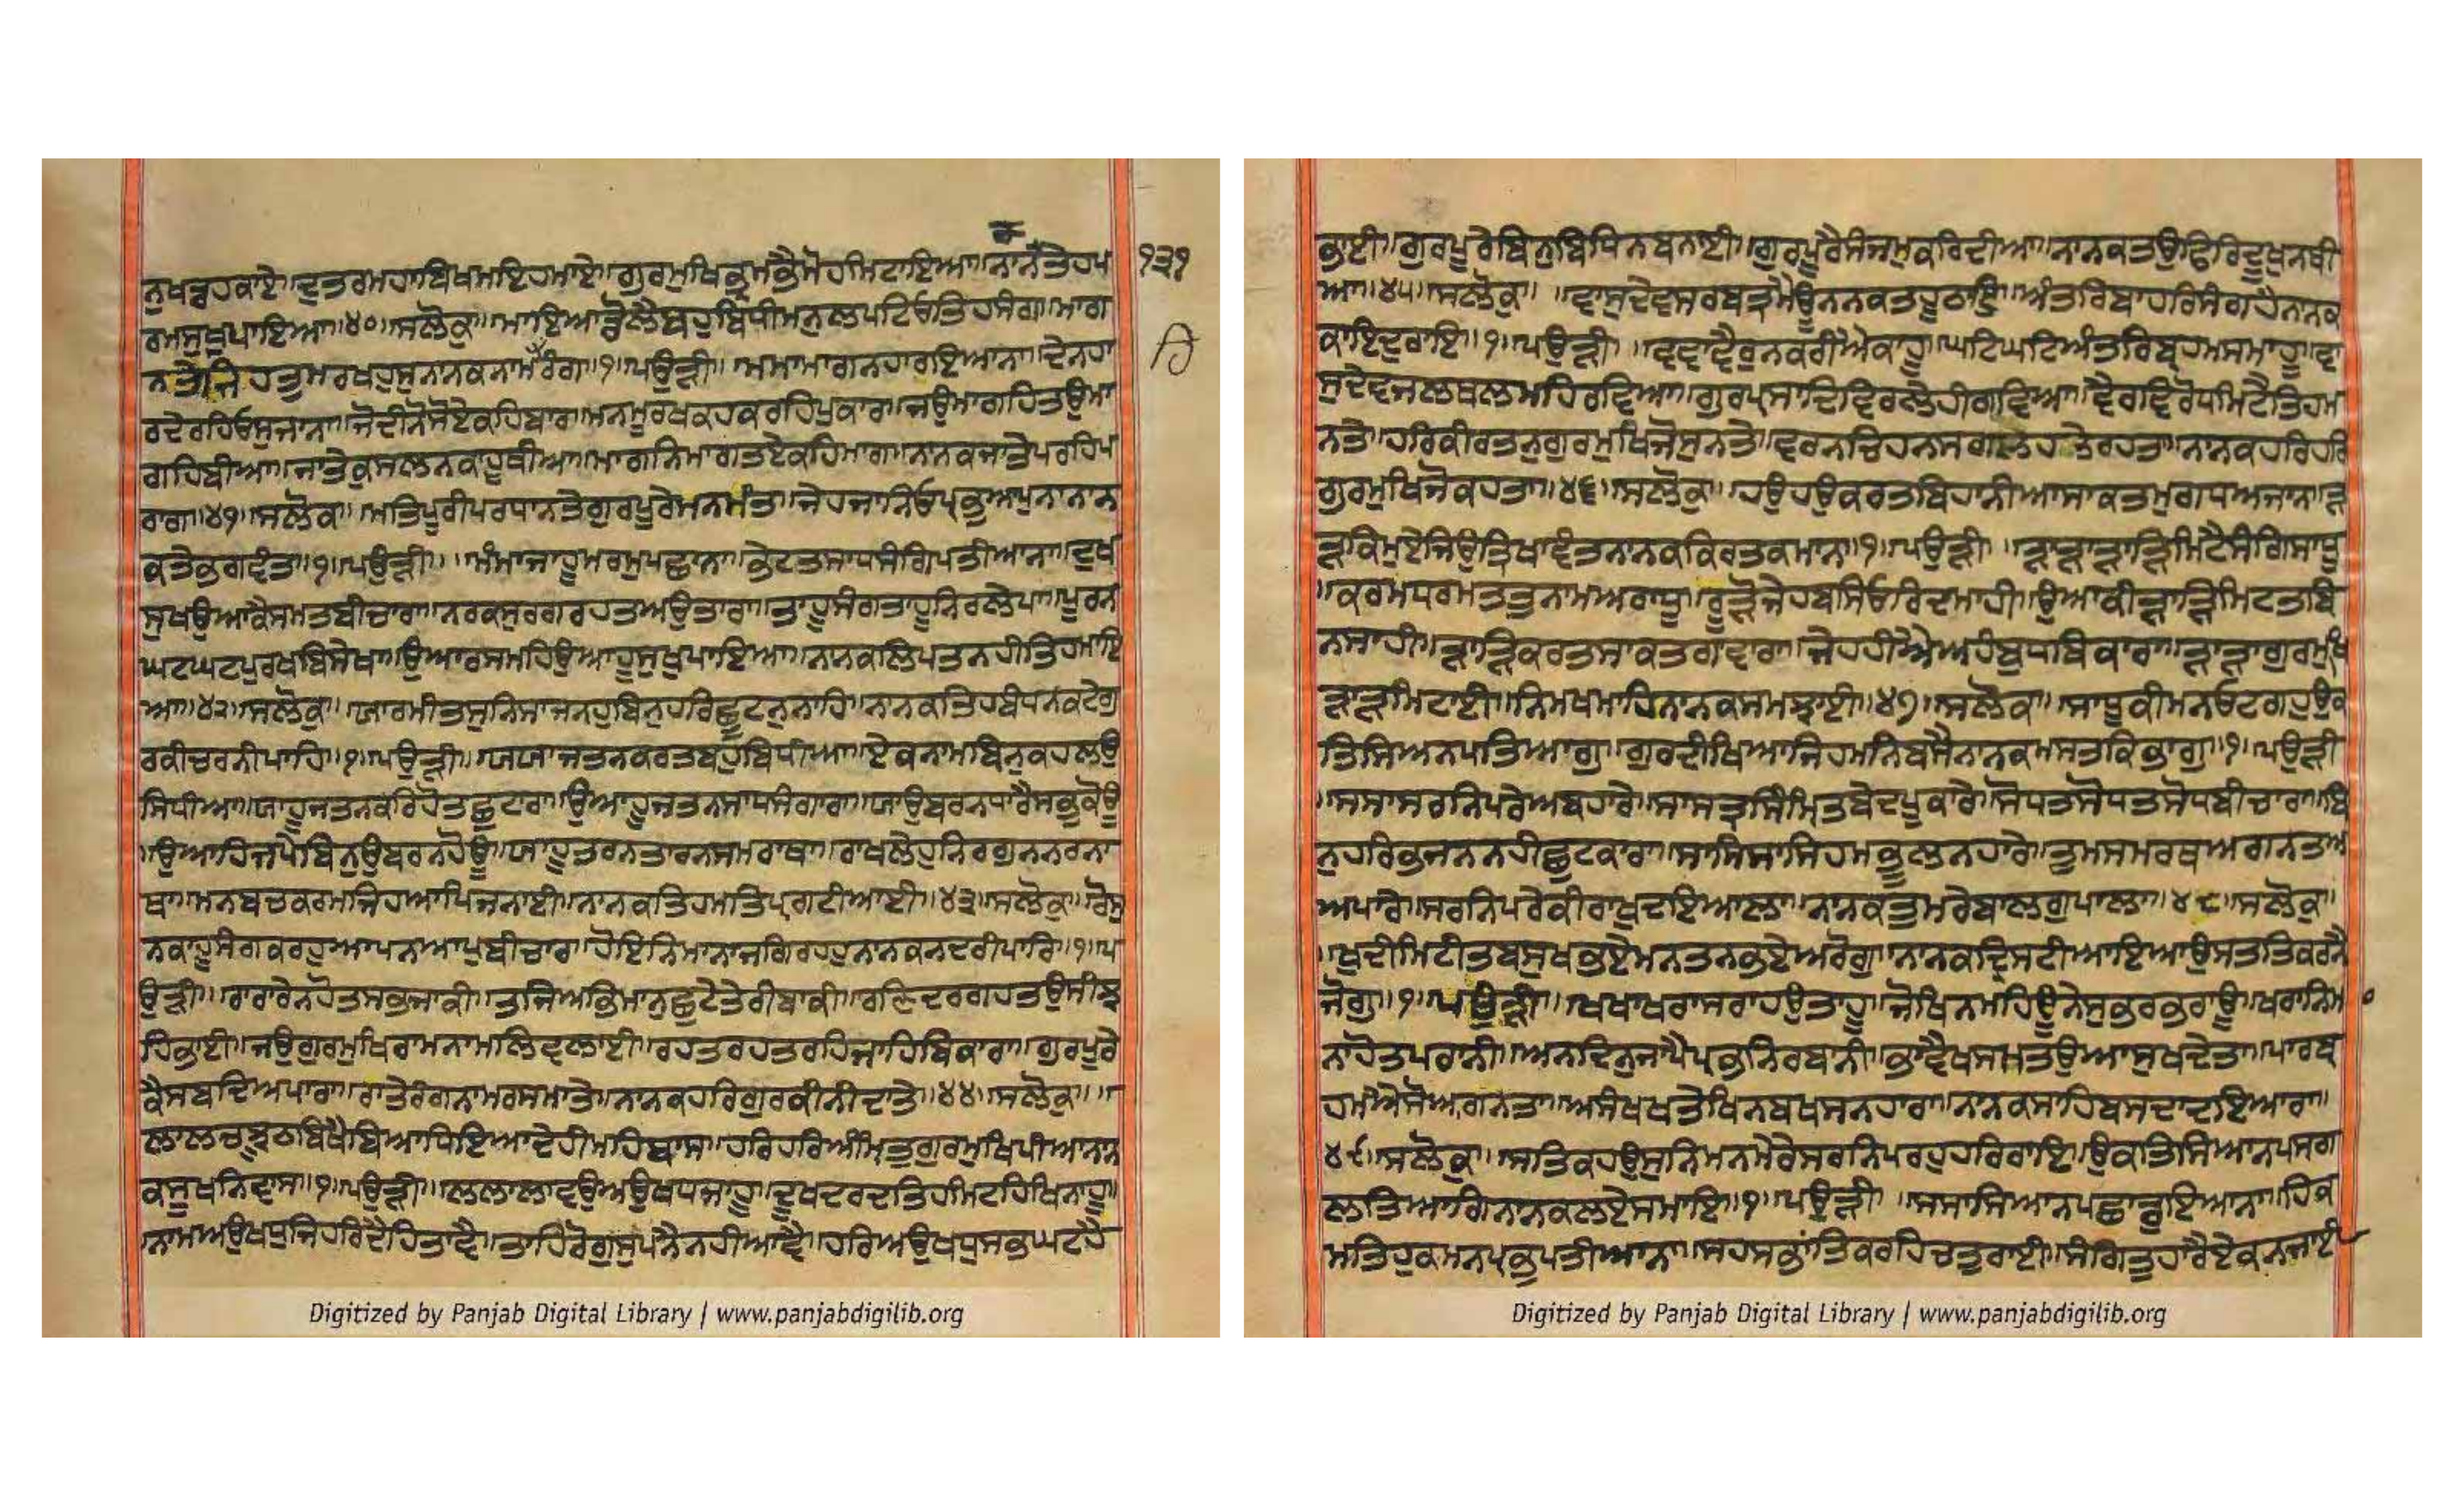 ਨੁਖਬ੍ਯਹਕਾਏ॥ਦੁਤਰਮਹਾਬਿਖਮਇਹਮਾਏ॥ਗੁਰਮੁਖਿਭ੍ਰਮਭੈਮੋਹਮਿਟਾਇਆ॥ਨਾਨਤੇਹਪ ੧੩੧
ਰਮਸੁਖਪਾਇਆ॥੪੦॥ਸਲੋਕੁ॥ਮਾਇਆਡੋਲੈਬਹੁਬਿਧੀਮਨੁਲਪਟਿਓਤਿਹਸੰਗ॥ਮਾਗ
ਨਤੇਜਿਹਤੁਮਰਖਹੁਸੁਨਾਨਕਨਾਮਰੰਗ॥੧॥ਪਉੜੀ॥ਮਮਾਮਾਗਨਹਾਰਇਆਨਾ॥ਦੇਨਹਾ
ਰਦੇਰਹਿਓਸੁਜਾਨਾ॥ਜੋਦੀਨੋਸੋਏਕਹਿਬਾਰ॥ਮਨਮੂਰਖਕਹਕਰਹਿਪੁਕਾਰ॥ਜਉਮਾਗਹਿਤਉਮਾ
ਗਹਿਬੀਆ॥ਜਾਤੇਕੁਸਲਨਕਾਹੂਥੀਆ॥ਮਾਗਨਿਮਾਗਤਏਕਹਿਮਾਗ॥ਨਾਨਕਜਾਤੇਪਰਹਿਪ
ਰਾਗ॥੪੧॥ਸਲੋਕ॥ਮਤਿਪੂਰੀਪਰਧਾਨਤੇਗੁਰਪੂਰੇਮਨਮੰਤ॥ਜੇਹਜਾਨਿਓਪ੍ਰਭੁਆਪੁਨਾਨਾਨ
ਕਤੇਭਗਵੰਤ॥੧॥ਪਉੜੀ॥ਮੰਮਾਜਾਹੂਮਰਮੁਪਛਾਨਾ॥ਭੇਟਤਸਾਧਸੰਗਿਪਤੀਆਨਾ॥ਦੁਖ
ਸੁਖਉਆਕੈਸਮਤਬੀਚਾਰਾ॥ਨਰਕਸੁਰਗਰਹਤਅਉਤਾਰਾ॥ਤਾਹੂਸੰਗਤਾਹੂਨਿਰਲੇਪਾ॥ਪੂਰਨ
ਘਟਘਟਪੁਰਖਬਿਸੇਖਾ॥ਉਆਰਸਮਹਿਉਆਹੂਸੁਖੁਪਾਇਆ॥ਨਾਨਕਲਿਪਤਨਹੀਤਿਹਮਾਇ
ਆ॥੪੨॥ਸਲੋਕੁ॥ਯਾਰਮੀਤਸੁਨਿਸਾਜਨਹੁਬਿਨੁਹਰਿਛੂਟਨੁਨਾਹਿ॥ਨਾਨਕਤਿਹਬੰਧਨਕਟੇਗੁ
ਰਕੀਚਰਨੀਪਾਹਿ॥੧॥ਪਉੜੀ॥ਯਯਾਜਤਨਕਰਤਬਹੁਬਿਧੀਆ॥ਏਕਨਾਮਬਿਨੁਕਹਲਉ
ਸਿਧੀਆ॥ਯਾਹੂਜਤਨਕਰਿਹੋਤਛੁਟਾਰਾ॥ਉਆਹੂਜਤਨਸਾਧਸੰਗਾਰਾ॥ਯਾਉਬਰਨਧਾਰੈਸਭੁਕੋਊ
॥ਉਆਹਿਜਪੇਬਿਨੁਉਬਰਨਹੋਊ॥ਯਾਹੂਤਰਨਤਾਰਨਸਮਰਾਥਾ॥ਰਾਖਲੇਹੁਨਿਰਗੁਨਨਰਨਾ
ਥਾ॥ਮਨਬਚਕਰਮਜਿਹਆਪਿਜਨਾਈ॥ਨਾਨਕਤਿਹਮਤਿਪ੍ਰਗਟੀਆਈ॥੪੩॥ਸਲੋਕੁ॥ਰੋਸੁ
ਨਕਾਹੂਸੰਗਕਰਹੁਆਪਨਆਪੁਬੀਚਾਰਿ॥ਹੋਇਨਿਮਾਨਾਜਗਿਰਹਹੁਨਾਨਕਨਦਰੀਪਾਰਿ॥੧॥ਪ
ਉੜੀ॥ਰਾਰਾਰੇਨਹੋਤਸਭਜਾਕੀ॥ਤਜਿਅਭਿਮਾਨੁਛੁਟੈਤੇਰੀਬਾਕੀ॥ਰਣਿਦਰਗਹਤਉਸੀਝ
ਹਿਭਾਈ॥ਜਉਗੁਰਮੁਖਿਰਾਮਨਾਮਲਿਵਲਾਈ॥ਰਹਤਰਹਤਰਹਿਜਾਹਿਬਿਕਾਰਾ॥ਗੁਰਪੂਰੇ
ਕੈਸਬਦਿਅਪਾਰਾ॥ਰਾਤੇਰੰਗਨਾਮਰਸਮਾਤੇ॥ਨਾਨਕਹਰਿਗੁਰਕੀਨੀਦਾਤੇ॥੪੪॥ਸਲੋਕੁ॥
ਲਾਲਚਝੂਠਬਿਖੈਬਿਆਧਿਇਆਦੇਹੀਮਹਿਬਾਸ॥ਹਰਿਹਰਿਅੰਮ੍ਰਿਤੁਗੁਰਮੁਖਿਪੀਆਨਾਨ
ਕਸੂਖਨਿਵਾਸ॥੧॥ਪਉੜੀ॥ਲਲਾਲਾਵਉਅਉਖਧਜਾਹੂ॥ਦੂਖਦਰਦਤਿਹਮਿਟਹਿਖਿਨਾਹੂ॥
ਨਾਮਅਉਖਧੁਜਿਹਰਿਦੈਹਿਤਾਵੈ॥ਤਾਹਿਰੋਗੁਸੁਪਨੈਨਹੀਆਵੈ॥ਹਰਿਅਉਖਧੁਸਭਘਟਹੈ
ਭਾਈ॥ਗੁਰਪੂਰੇਬਿਨੁਬਿਧਿਨਬਨਾਈ॥ਗੁਰਪੂਰੈਸੰਜਮੁਕਰਿਦੀਆ॥ਨਾਨਕਤਉਫਿਰਿਦੂਖੁਨਥੀ
ਆ॥੪੫॥ਸਲੋਕੁ॥ਵਾਸੁਦੇਵਸਰਬਤ੍ਰਮੈਊਨਨਕਤਹੂਠਾਇ॥ਅੰਤਰਿਬਾਹਰਿਸੰਗਹੈਨਾਨਕ
ਕਾਇਦੁਰਾਇ॥੧॥ਪਉੜੀ॥ਵਵਾਵੈਰੁਨਕਰੀਐਕਾਹੂ॥ਘਟਿਘਟਿਅੰਤਰਿਬ੍ਰਹਮਸਮਾਹੂ॥ਵਾ
ਸੁਦੇਵਜਲਥਲਮਹਿਰਵਿਆ॥ਗੁਰਪ੍ਰਸਾਦਿਵਿਰਲੈਹੀਗਵਿਆ॥ਵੈਰਵਿਰੋਧਮਿਟੈਤਿਹਮ
ਨਤੇ॥ਹਰਿਕੀਰਤਨੁਗੁਰਮੁਖਿਜੋਸੁਨਤੇ॥ਵਰਨਚਿਹਨਸਗਲਹਤੇਰਹਤਾ॥ਨਾਨਕਹਰਿਹਰਿ
ਗੁਰਮੁਖਿਜੋਕਹਤਾ॥੪੬॥ਸਲੋਕੁ॥ਹਉਹਉਕਰਤਬਿਹਾਨੀਆਸਾਕਤਮੁਗਧਅਜਾਨ॥ੜ
ੜਕਿਮੁਏਜਿਉਤ੍ਰਿਖਾਵੰਤਨਾਨਕਕਿਰਤਕਮਾਨ॥੧॥ਪਉੜੀ॥ੜਾੜਾੜਾੜਿਮਿਟੈਸੰਗਿਸਾਧੂ
॥ਕਰਮਧਰਮਤਤੁਨਾਮਅਰਾਧੂ॥ਰੂੜੋਜਿਹਬਸਿਓਰਿਦਮਾਹੀ॥ਉਆਕੀੜਾੜਿਮਿਟਤਬਿ
ਨਸਾਹੀ॥ੜਾੜਿਕਰਤਸਾਕਤਗਾਵਾਰਾ॥ਜੇਹਹੀਐਅਹੰਬੁਧਬਿਕਾਰਾ॥ੜਾੜਾਗੁਰਮੁਖਿ
ੜਾੜਮਿਟਾਈ॥ਨਿਮਖਮਾਹਿਨਾਨਕਸਮਝਾਈ॥੪੭॥ਸਲੋਕ॥ਸਾਧੂਕੀਮਨਓਟਗਹੁਉਕ
ਤਿਸਿਆਨਪਤਿਆਗੁ॥ਗੁਰਦੀਖਿਆਜਿਹਮਨਿਬਸੈਨਾਨਕਮਸਤਕਿਭਾਗੁ॥੧॥ਪਉੜੀ
॥ਸਸਾਸਰਨਿਪਰੇਅਬਹਾਰੇ॥ਸਾਸਤ੍ਰਸਿੰਮ੍ਰਿਤਬੇਦਪੂਕਾਰੇ॥ਸੋਧਤਸੋਧਤਸੋਧਬੀਚਾਰਾ॥ਬਿ
ਨੁਹਰਿਭਜਨਨਹੀਛੁਟਕਾਰਾ॥ਸਾਸਿਸਾਸਿਹਮਭੂਲਨਹਾਰੇ॥ਤੁਮਸਮਰਥਅਗਨਤਅ
ਅਪਾਰੇ॥ਸਰਨਿਪਰੇਕੀਰਾਖੁਦਇਆਲਾ॥ਨਾਨਕਤੁਮਰੇਬਾਲਗੁਪਾਲਾ॥੪੮॥ਸਲੋਕੁ॥
॥ਖੁਦੀਮਿਟੀਤਬਸੁਖਭਏਮਨਤਨਭਏਅਰੋਗ॥ਨਾਨਕਦ੍ਰਿਸਟੀਆਇਆਉਸਤਤਿਕਰਨੈ
ਜੋਗੁ॥੧॥ਪਉੜੀ॥ਖਖਾਖਰਾਸਰਾਹਉਤਾਹੂ॥ਜੋਖਿਨਮਹਿਊਨੇਸੁਭਰਭਰਾਊ॥ਖਰਾਨਿਮ
ਨਾਹੋਤਪਰਾਨੀ॥ਅਨਦਿਨੁਜਾਪੈਪ੍ਰਭਨਿਰਬਾਨੀ॥ਭਾਵੈਖਸਮਤਉਆਸੁਖਦੇਤਾ॥ਪਾਰਬ੍ਰ
ਹਮੁਐਸੋਅਗਨਤਾ॥ਅਸੰਖਖਤੇਖਿਨਬਖਸਨਹਾਰਾ॥ਨਾਨਕਸਾਹਿਬਸਦਾਦਇਆਰਾ॥
੪੯॥ਸਲੋਕੁ॥ਸਤਿਕਹਉਸੁਨਿਮਨਮੇਰੇਸਰਨਿਪਰਹੁਹਰਿਰਾਇ॥ਉਕਤਿਸਿਆਨਪਸਗ
ਲਤਿਆਗਿਨਾਨਕਲਏਸਮਾਇ॥੧॥ਪਉੜੀ॥ਸਸਾਸਿਆਨਪਛਾਡੁਇਆਨਾ॥ਹਿਕ
ਮਤਿਹੁਕਮਨਪ੍ਰਭੁਪਤੀਆਨਾ॥ਸਹਸਭਾਂਤਿਕਰਹਿਚਤੁਰਾਈ॥ਸੰਗਿਤੁਹਾਰੈਏਕਨਜਾਈ
Digitized by Panjab Digital Library | www.panjabdigilib.org
Digitized by Panjab Digital Library | www.panjabdigilib.org